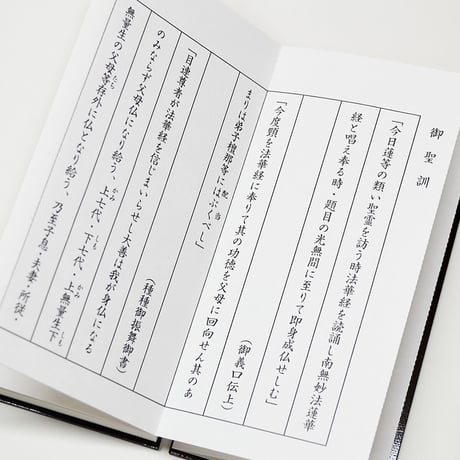 御聖訓
「今日蓮等の類い聖霊を訪う時法華経を読誦し南無妙法蓮華
経と唱え奉る時・題目の光無間に至りて即身成仏せしむ」
（御義口伝上）
「今度頸を法華経に奉りて其の功徳を父母に回向せん其のあ
まりは弟子檀那等にはぶく配当べし」
（種種御振舞御書）
「目連尊者が法華経を信じまいらせし大善は我が身仏になる
のみならず父母仏になり給う、上かみ七代・下しも七代、上かみ無量生下しも
無量生の父母等たち存外に仏となり給う、乃至子息・夫妻・所従・